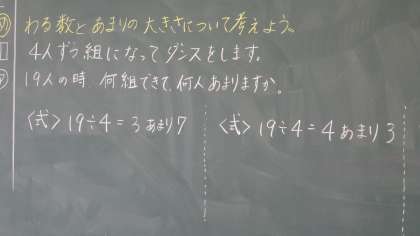 わる数とあまりの大きさについて考えよう。
4人ずつ組になってダンスをします。
19人の時 何組できて、何人あまりますか。
〈式〉19÷4=3あまり7
〈式〉19÷4=4あまり3